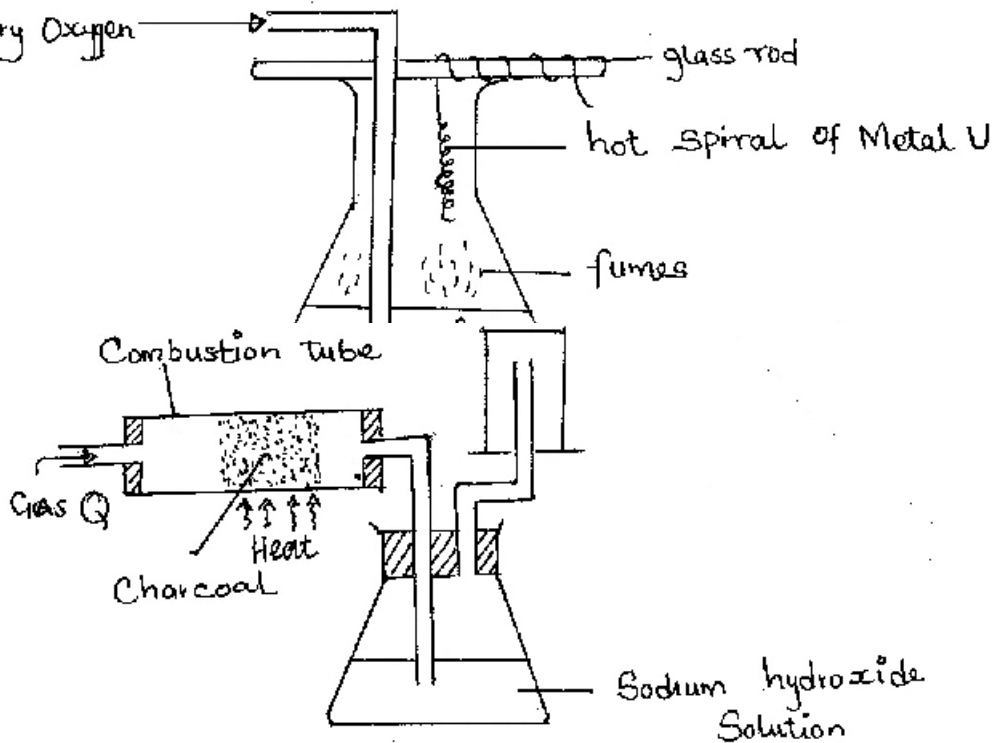 ry Oxygen
glass rod
hot Spiral of Metal U
fumes
Combustion tube
Gas Q
Heat
Charcoal
Sodium hydroxide
Solution